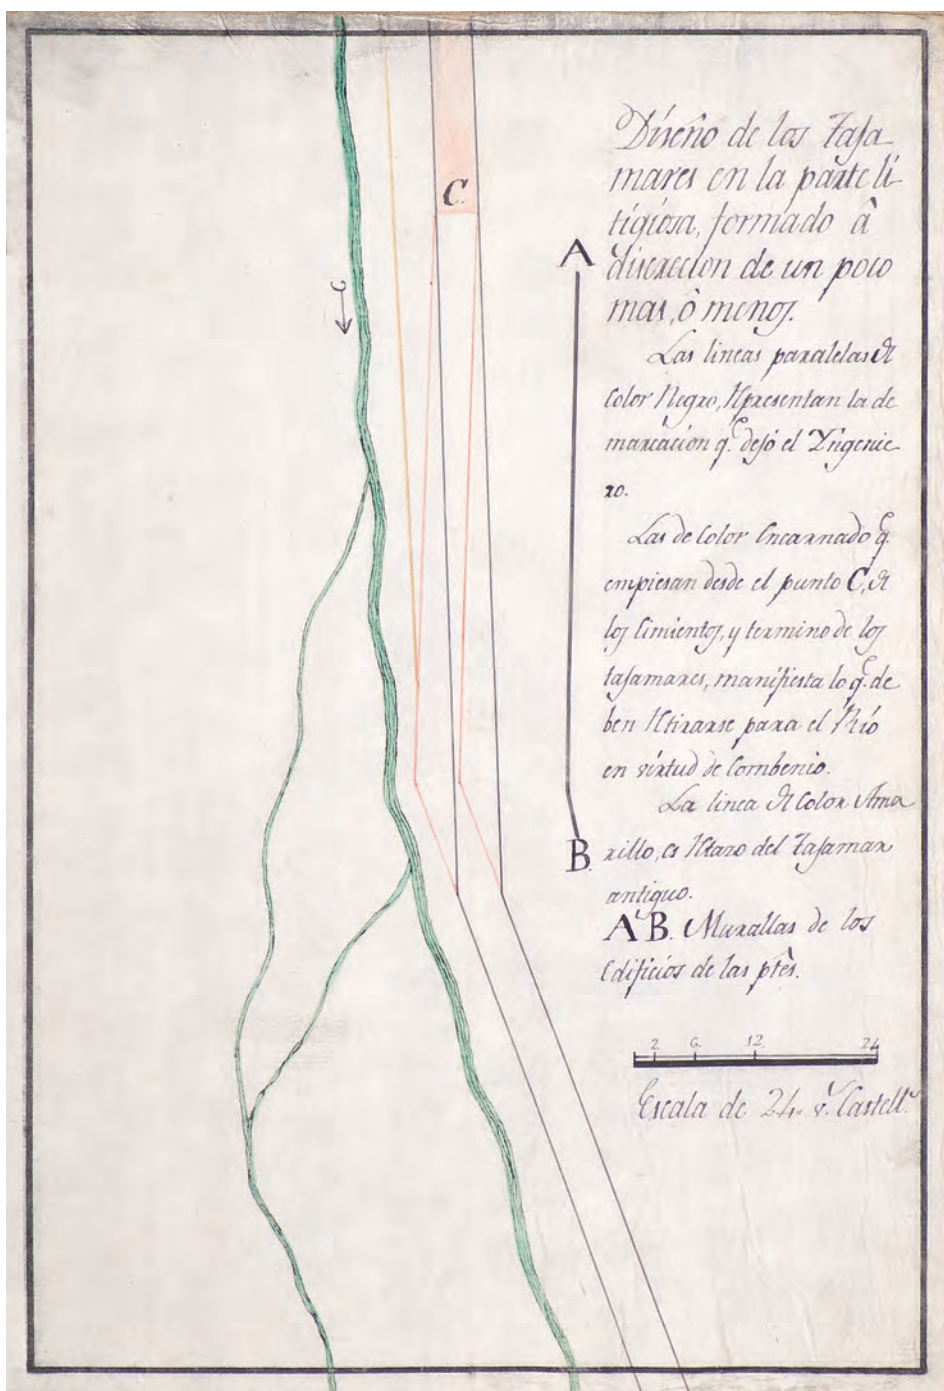 C.
C
A
B
Diseño de los Taja
mares en la parte li-
tigiosa, formado â
discrecion de un poco
mas, ô menos.
Las lineas paralelas de
Color Negro, Representan la de
marcacion q.e dejó el Yngenie
ro.
Las de Color Encarnado q.e
empiesan desde el punto C, de
los Cimientos, y termino de los
tajamares, manifiesta lo q.e de
ben Retirarse para el Río
en virtud de Combenio.
La linea de Color Ama
rillo, es Retazo del Tajamar
antiguo.
A B. Murallas de los
Edificios de las ptês.
2. 6. 12. 24
Escala de 24 v.s Castell.s